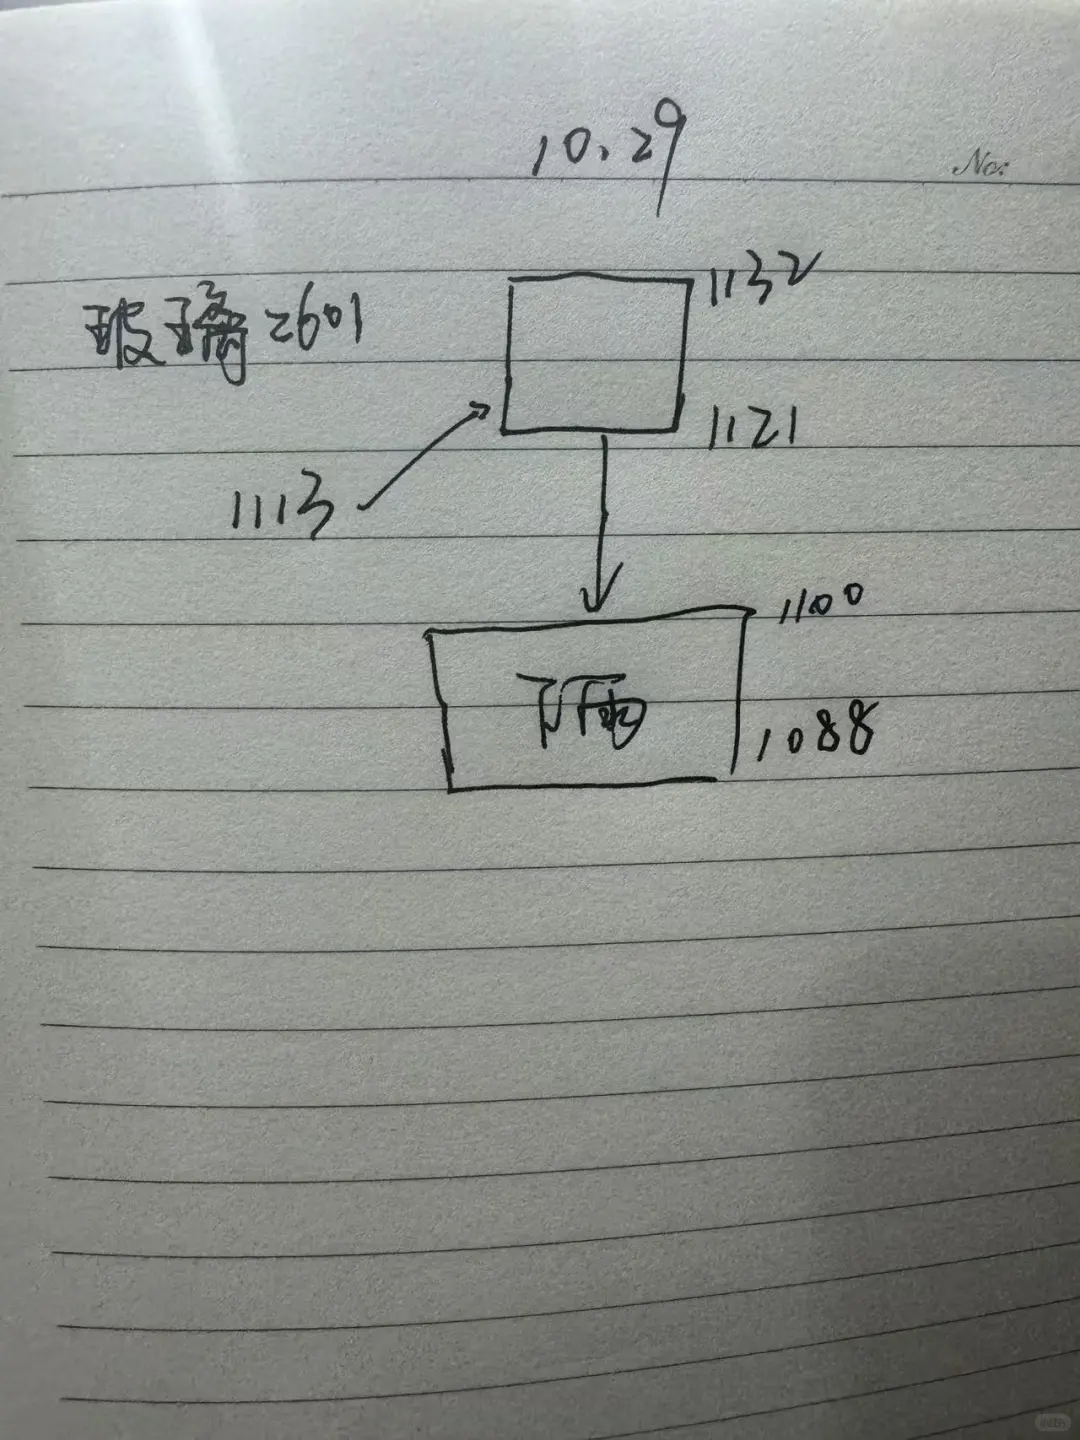 10.29
No:
1132
玻璃2601
1121
1113
1100
下雨
1088